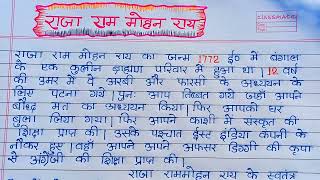 राजा राम मोहन राय
CLASSMATE
राजा राम मोहन राय का जन्म 1772 ई० में बंगाल
के एक कुलीन ब्राह्मण परिवार में हुआ था। 12 वर्ष
की उम्र में वे अरबी और फारसी के अध्ययन के
लिए पटना गये। पुनः आप तिब्बत गये जहाँ आपने
बौद्ध मत का अध्ययन किया। फिर आपको घर
बुला लिया गया। फिर आपने काशी में संस्कृत की
शिक्षा प्राप्त की। उसके पश्चात ईस्ट इंडिया कंपनी के
नौकर हुए। वहाँ आपने अपने अफसर डिग्गी की कृपा
से अंग्रेजी की शिक्षा प्राप्त की।
राजा राममोहन राय के स्वतंत्र